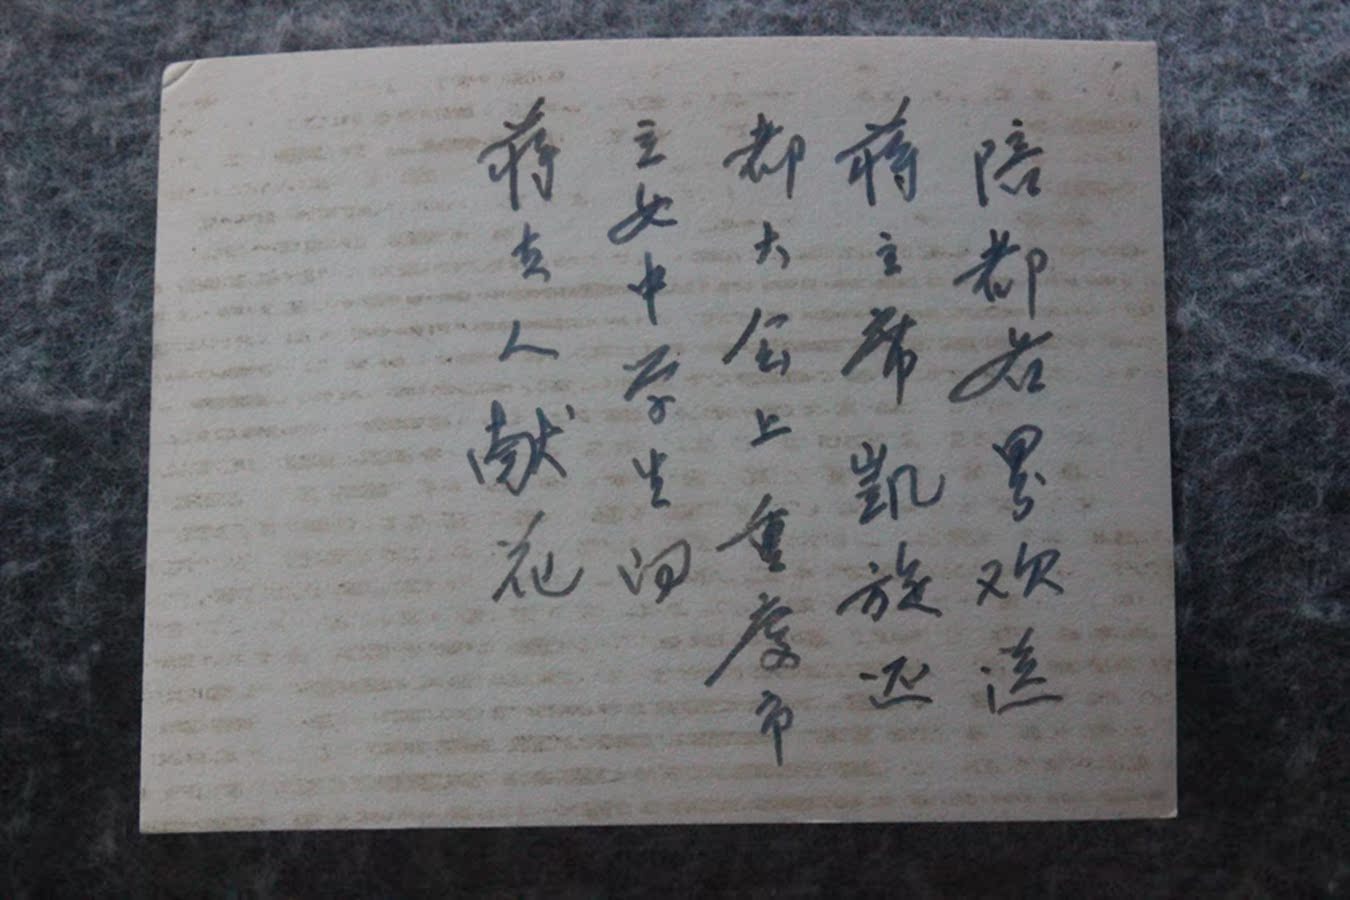 陪都各界欢送
蒋主席凯旋还
都大会上重庆市
立女中学生向
蒋夫人献花